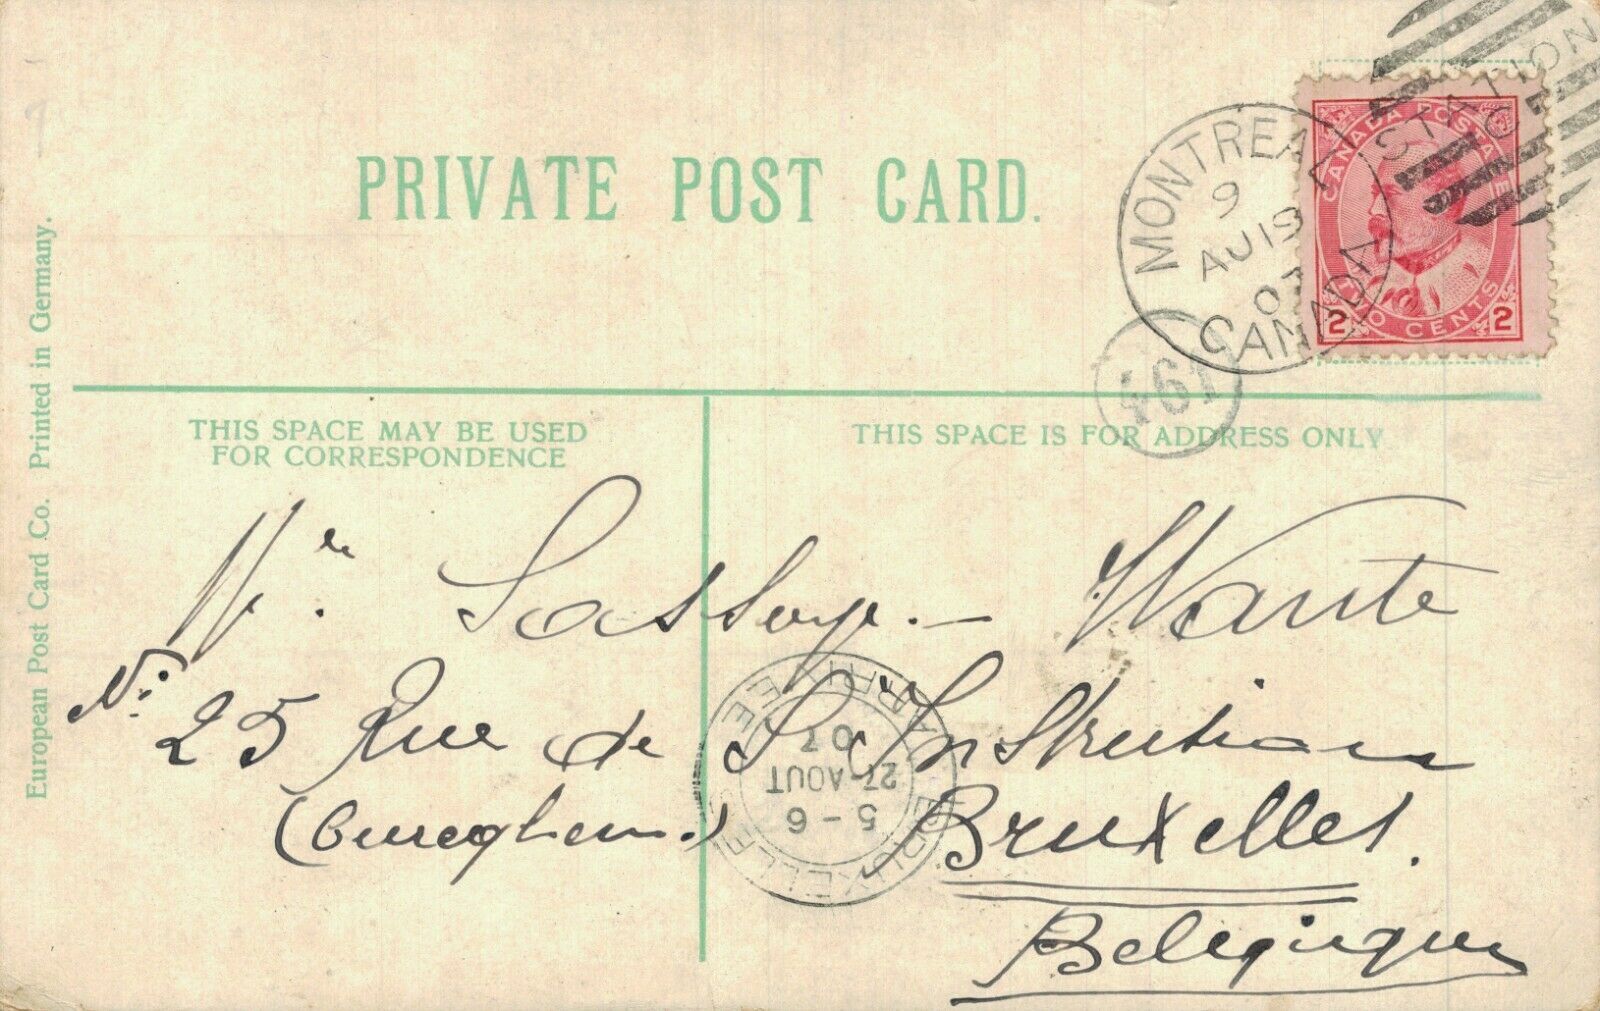 PRIVATE POST CARD.
MONTREAL
9
AU 19
07
CANADA
STATION
CANADA POSTAGE
TWO CENTS
2 2
461
THIS SPACE MAY BE USED
FOR CORRESPONDENCE
THIS SPACE IS FOR ADDRESS ONLY
European Post Card Co. Printed in Germany.
Wante
No. 25 Rue de l'Instruction
(Cureghem.) Bruxelles.
Belgique
BRUXELLES
5-6
27 AOUT
07
ARRIVEE